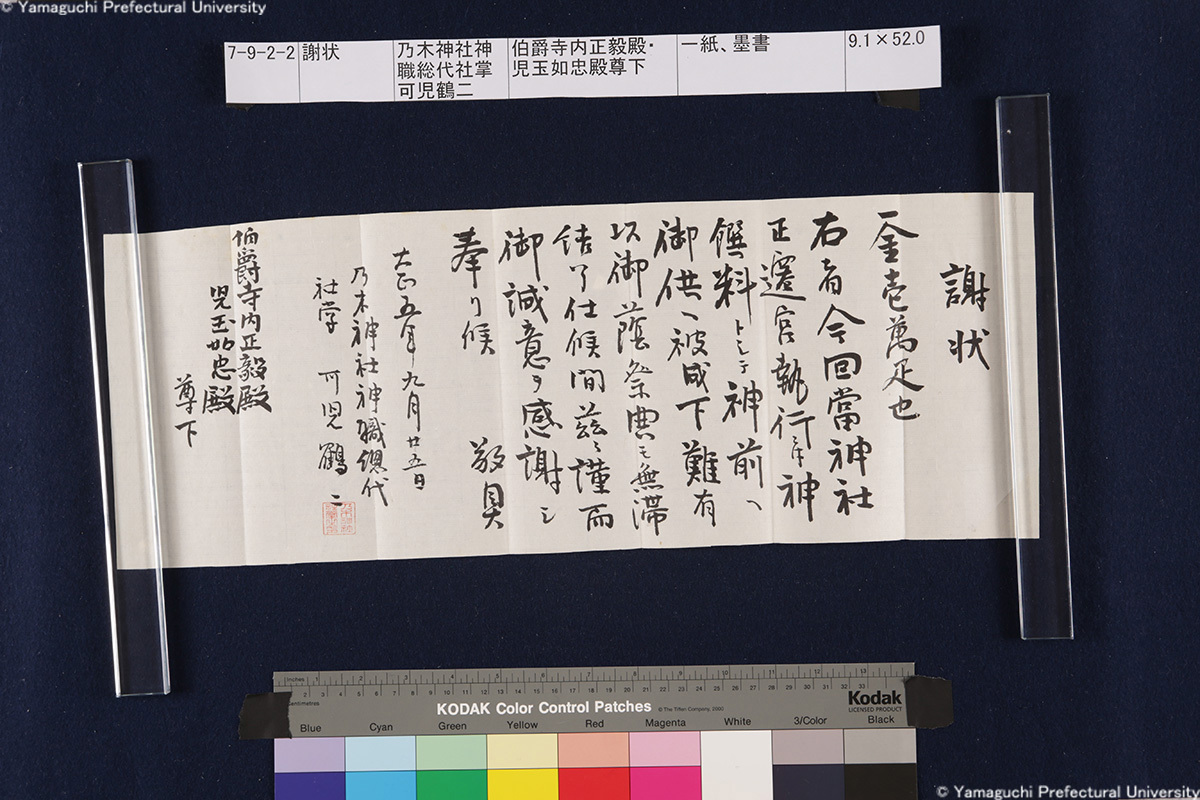 © Yamaguchi Prefectural University
7-9-2-2
謝状
乃木神社神
職総代社掌
可児鶴二
伯爵寺内正毅殿・
児玉如忠殿尊下
一紙、墨書
9.1×52.0
謝状
一金壱萬疋也
右者今回當神社
正遷宮執行ニ付神
饌料トシテ神前ヘ
御供ヘ被成下難有
以御蔭祭典モ無滞
結了仕候間茲ニ謹而
御誠意ヲ感謝シ
奉リ候 敬具
大正五年九月廿五日
乃木神社神職總代
社掌 可児鶴二
伯爵寺内正毅殿
児玉如忠殿
尊下
Inches 1 2 3 4 5 6 7 8
Centimetres 2 3 4 5 6 7 8 9 10 11 12 13 14 15 16 17 18 19 20 21 22 23 24 25 26 27 28 29 30 31 32 33
KODAK Color Control Patches
© The Tiffen Company, 2000
Kodak
LICENSED PRODUCT
Blue Cyan Green Yellow Red Magenta White 3/Color Black
© Yamaguchi Prefectural University